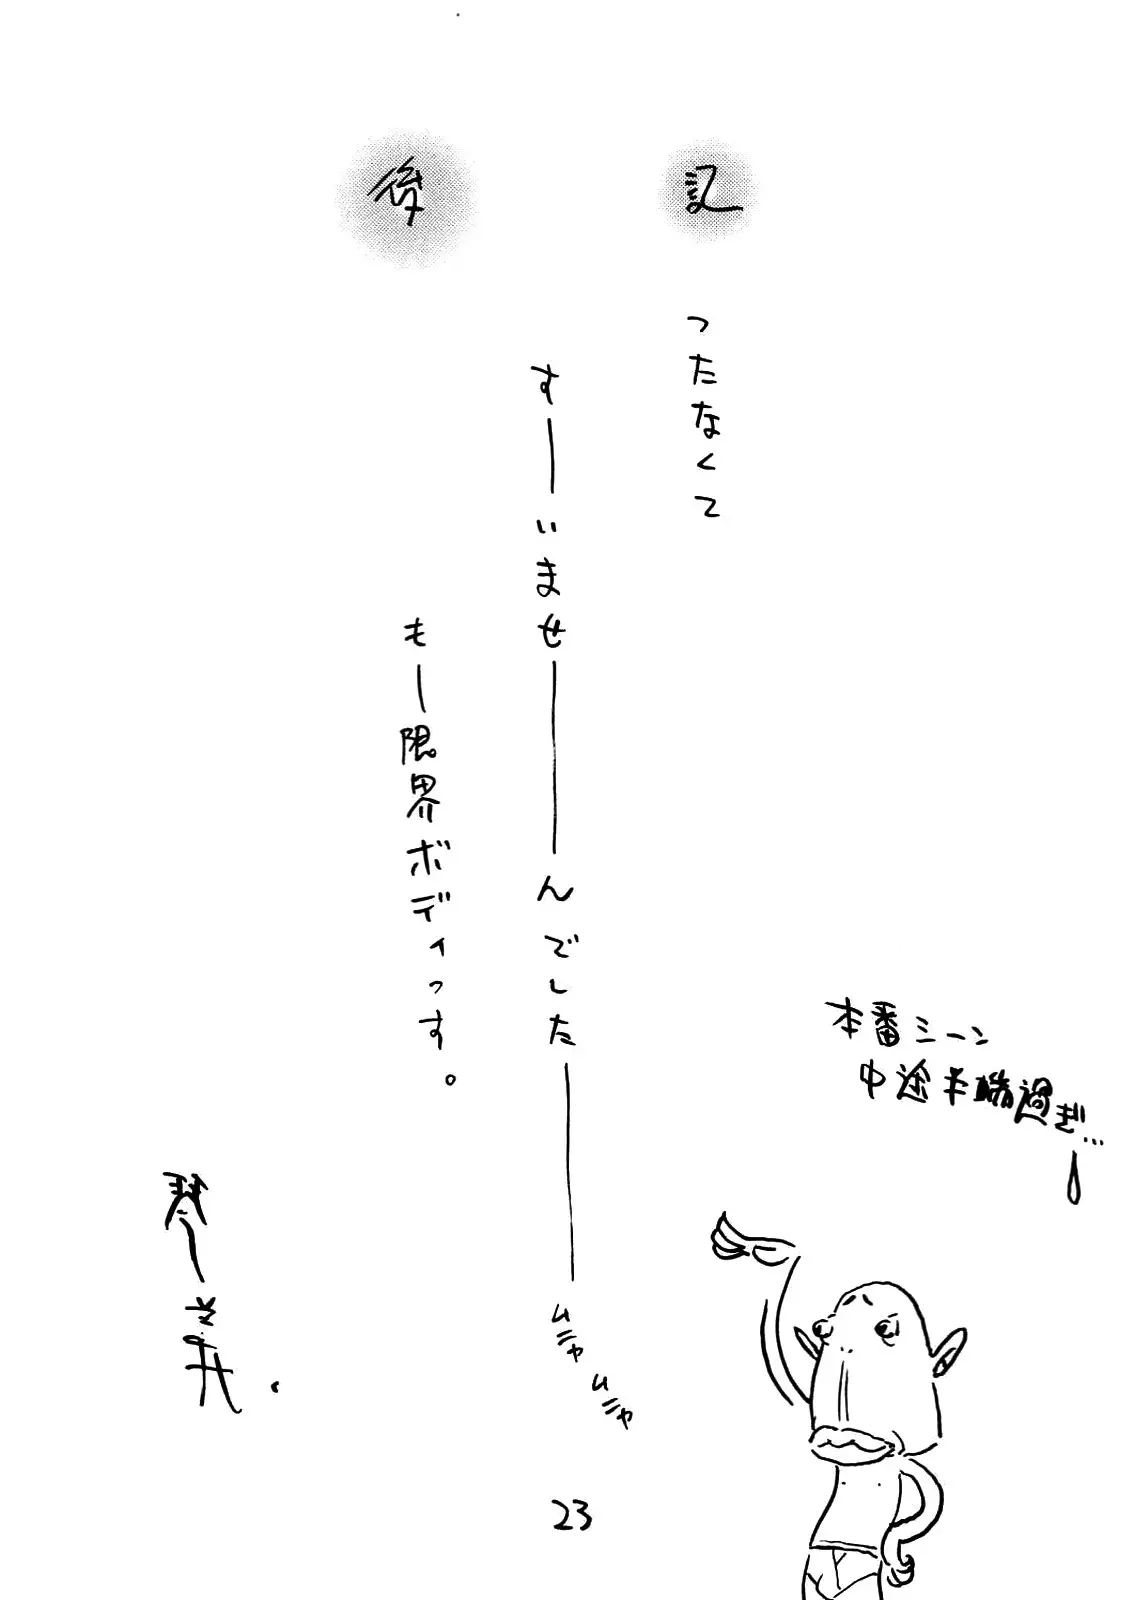 後記
つたなくて
すーいませーんでしたー
ムニャ
ムニャ
もー限界ボディっす。
本番シーン
中途半端過ぎ…
23